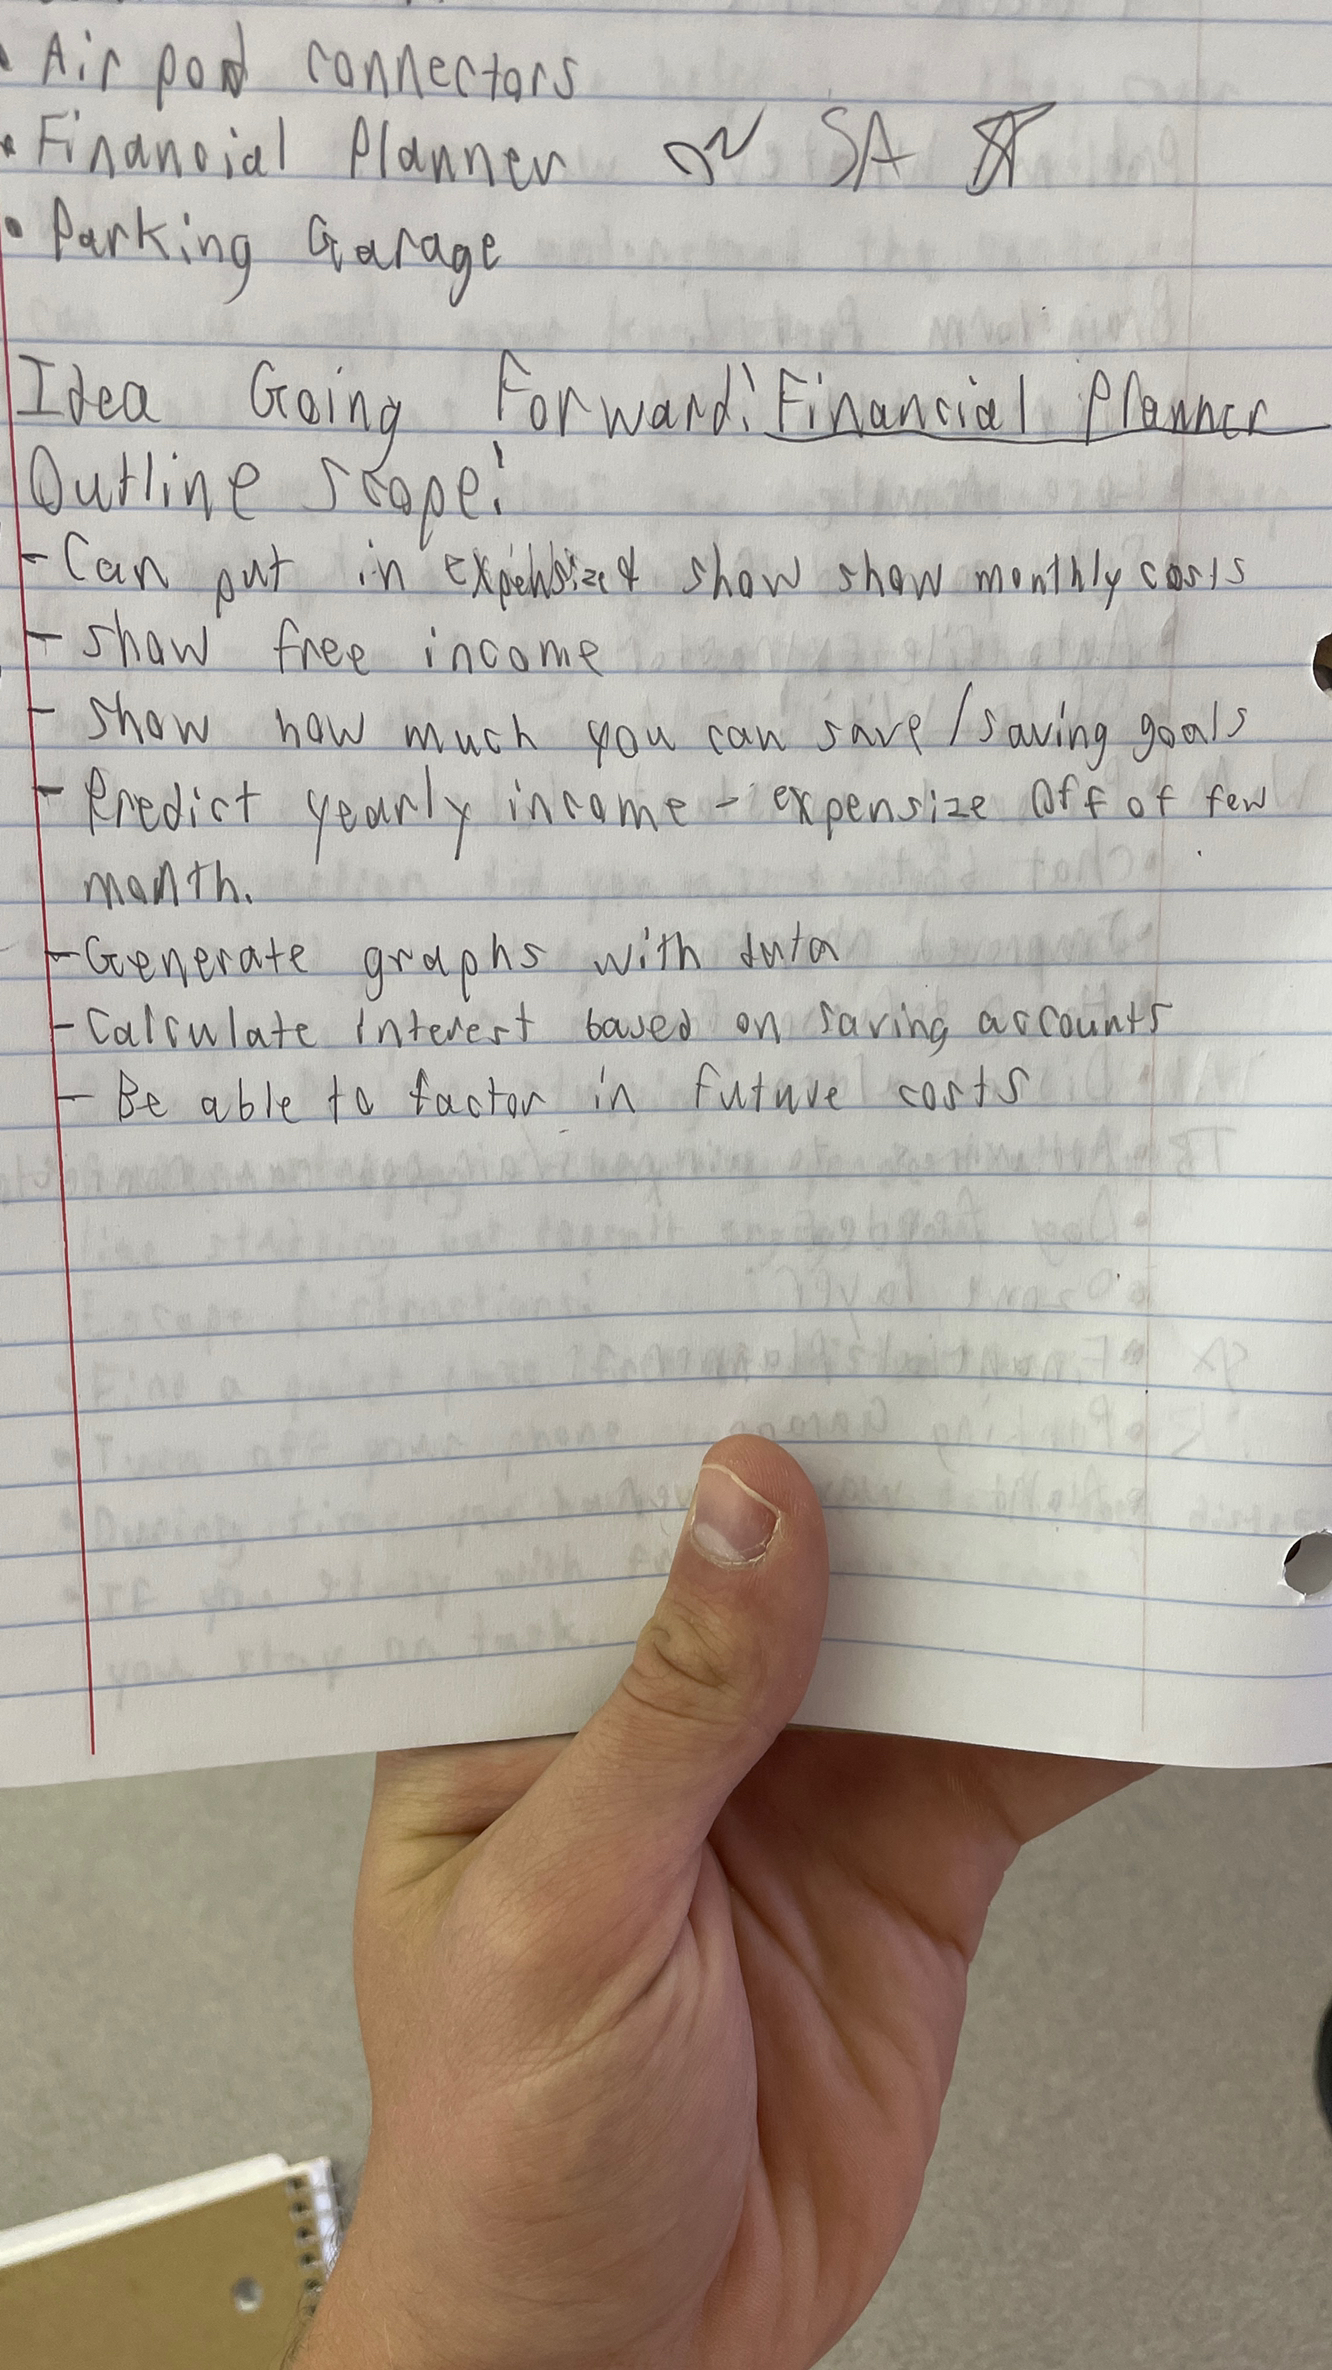 • Air pod connectors
• Financial Planner SA
• Parking Garage
Idea Going Forward: Financial Planner
Outline Scope:
- Can put in show show monthly costs
- show free income
- show how much you can save/saving goals
- Predict yearly income - expensize Off of few
month.
- Generate graphs with data
- Calculate interest based on saving accounts
- Be able to factor in future costs